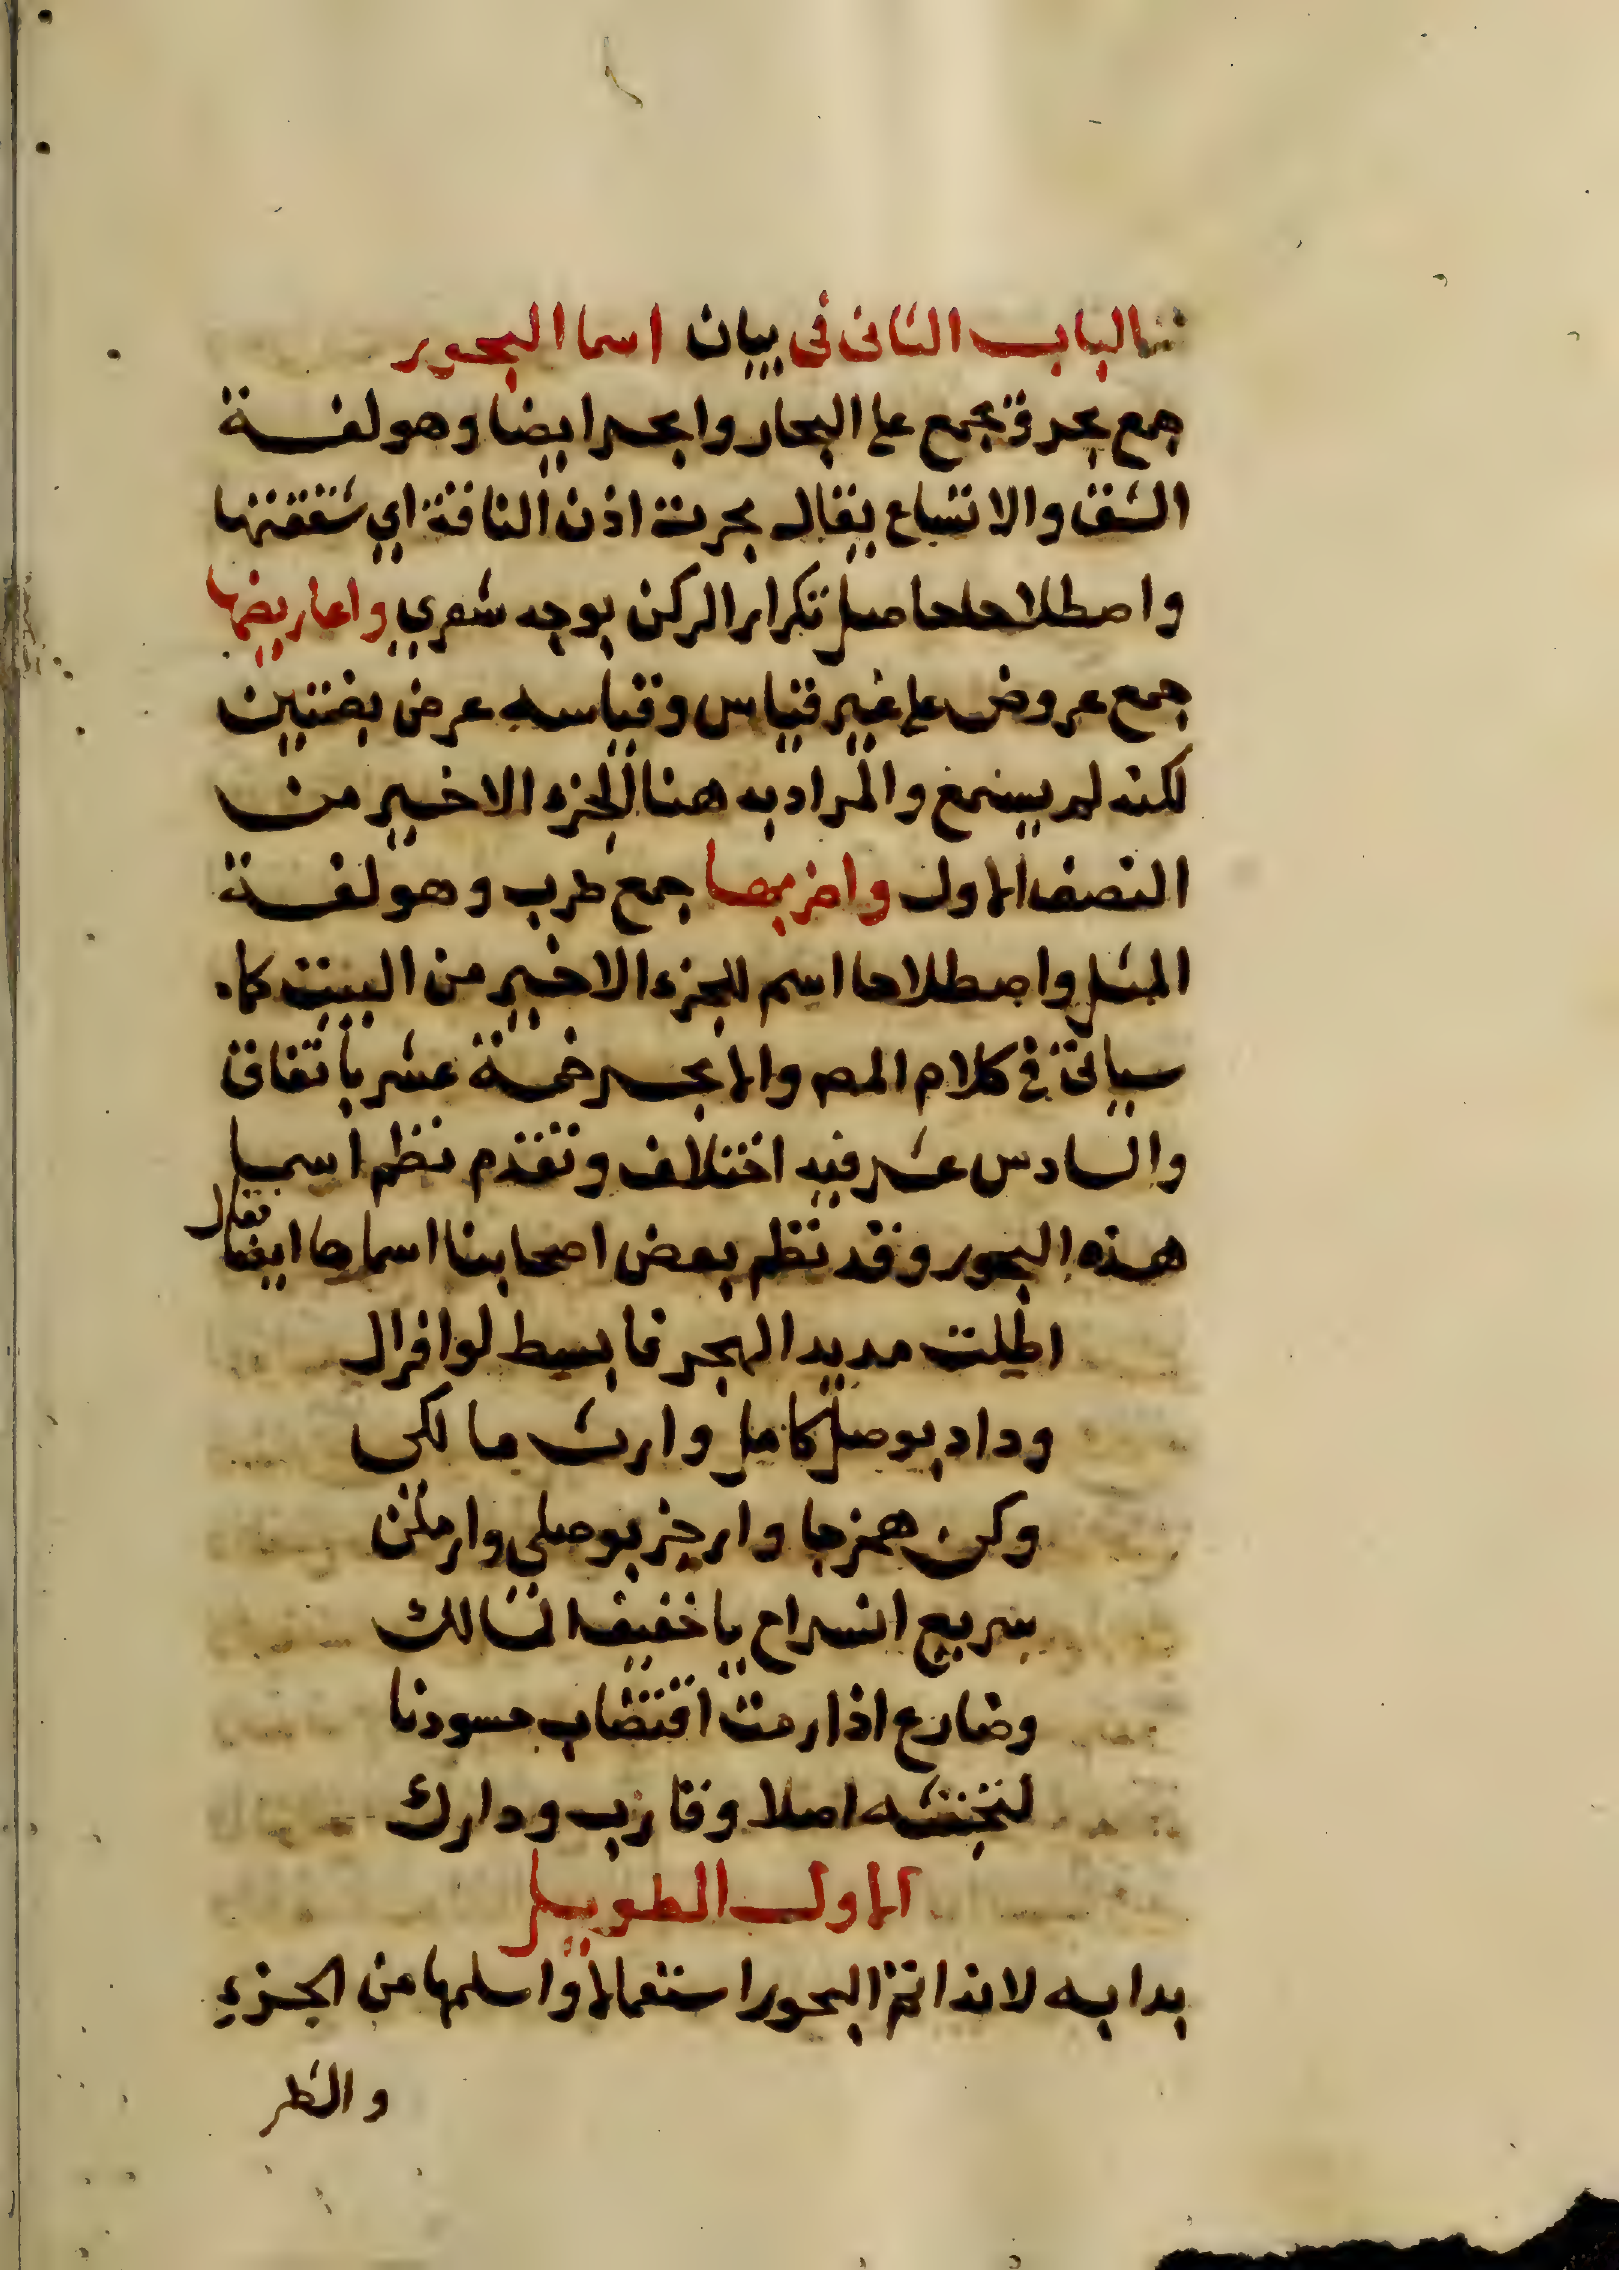 الباب الثانى فى بيان اسما البحور
جمع بحر وتجمع على البحار وابحر ايضا وهو لغة
الشق والاتساع يقال بحرت اذن الناقة اي شققتها
واصطلاحا حاصل تكرار الركن بوجه شعري واعاريضها
جمع عروض على غير قياس وقياسه عرض بضمتين
لكنه لم يسمع والمراد به هنا الجزء الاخير من
النصف الاول واضربها جمع ضرب وهو لغة
المثل واصطلاحا اسم للجزء الاخير من البيت كما
سياتى فى كلام المص والابحر خمسة عشر باتفاق
والسادس عشر فيه اختلاف وتقدم نظم اسما
هذه البحور وقد نظم بعض اصحابنا اسماها ايضا فقال
اطلت مديد الهجر فابسيط لوافر ال
وداد بوصل كامل وارث مالكى
وكن همزجا وارجز بوصلى وارملن
سريع انسراح يا خفيف المسالك
وضارع اذا رمت اقتضاب حسودنا
لتجتثه اصلا وقارب ودارك
الاول الطويل
بدا به لانه اتم البحور استعمالا واسلمها من الجزء
والشطر